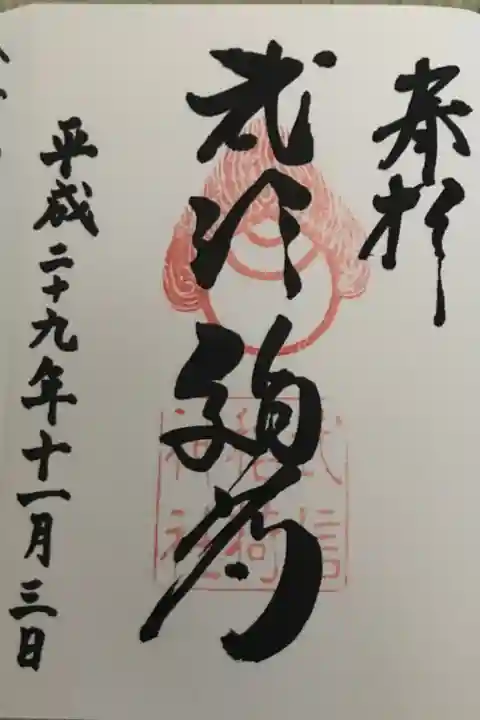 奉拝
武信稲荷
武信
稲荷
神社
平成二十九年十一月三日